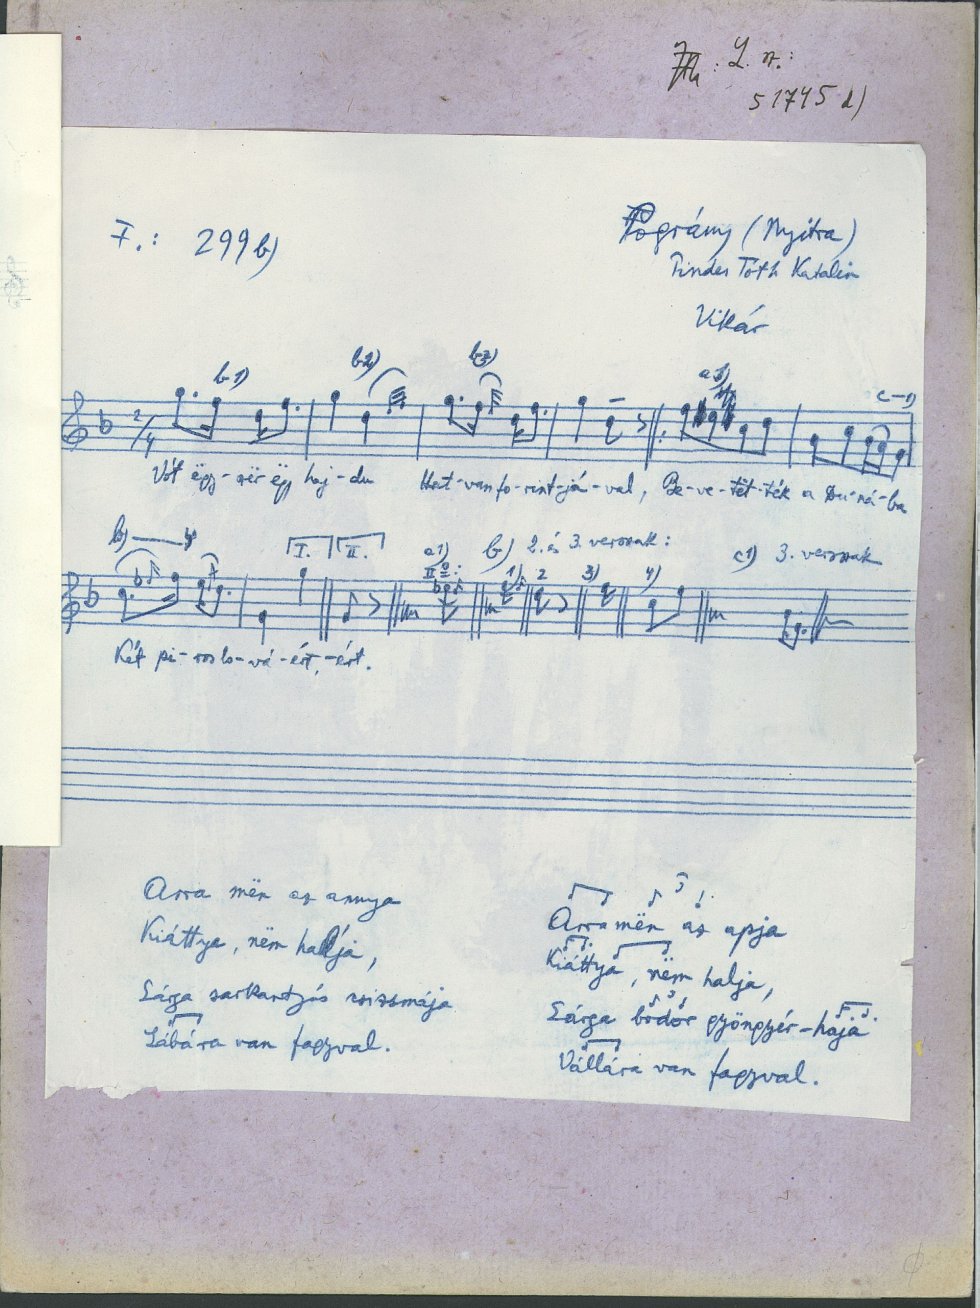 L. sz.:
51745 d)
F.: 299 b)
Pográny (Nyitra)
Tindes Tóth Katalin
Vikár
b 1) b 2) b 3) a 1) c-1)
2/4
Vót ëgy-szër ëgy haj-du Hat-van fo-rint-já-val, Be-ve-tët-ték a Du-ná-ba
b) 4)
I. II. a 1) b) 2. és 3. versszak: c 1) 3. versszak
II 1) 2 3) 4)
Két pi-ros lo-vá-ért, -ért.
Arra mën az annya
Kiáttya, nëm halljá,
Sárga sarkantyús csizsmája
Lábára van fagyval.
3
Arra mën az apja
Kiáttya, nëm halja,
3
Sárga bodor gyöngyér-haja
Vállára van fagyval.